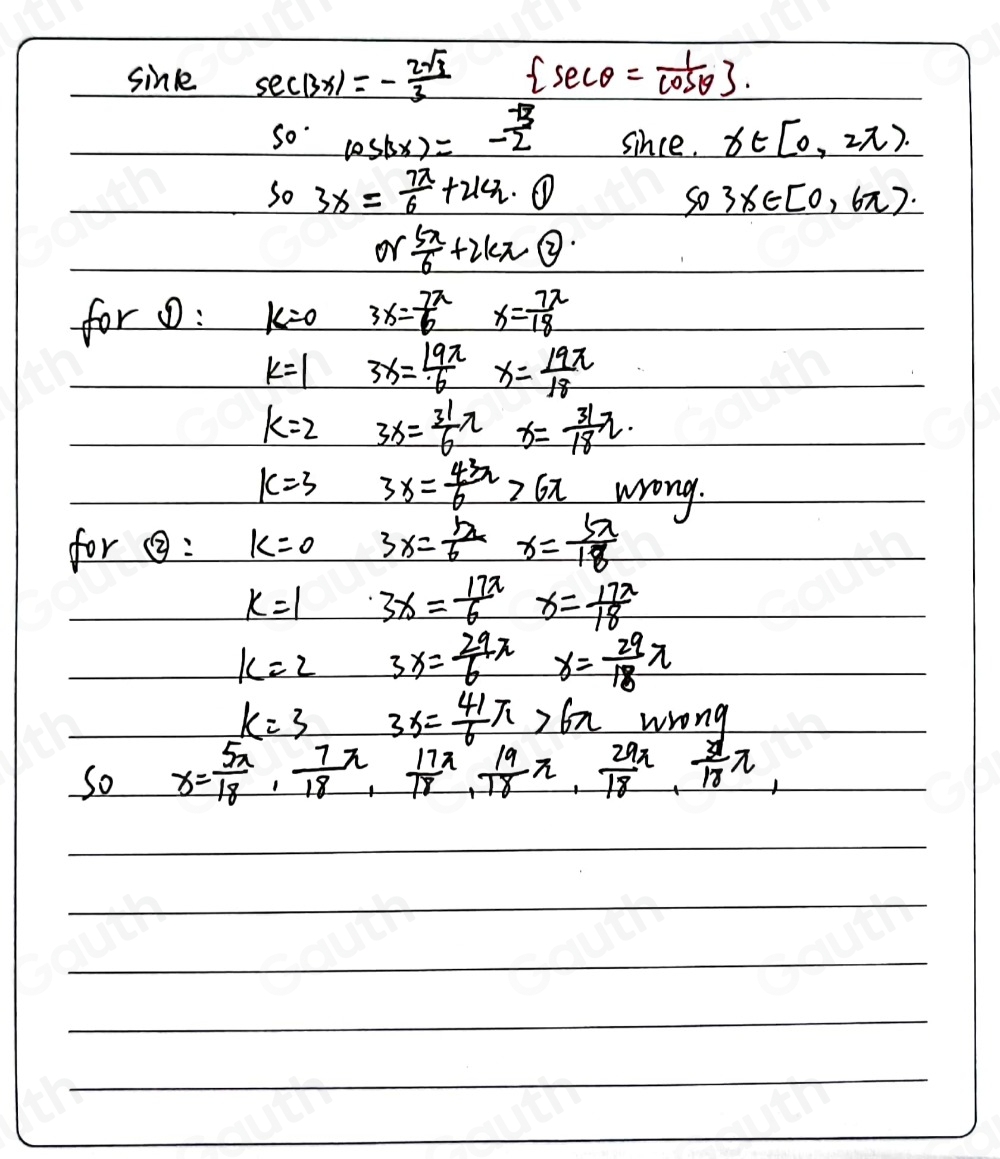 since sec(3x) = -2√3/3 {secθ = 1/cosθ}.
so cos(3x) = -√3/2 since. x∈[0, 2π).
so 3x = 7π/6 + 2kπ. ① so 3x∈[0, 6π).
or 5π/6 + 2kπ ②.
for ①: k=0 3x=7π/6 x=7π/18
k=1 3x=19π/6 x=19π/18
k=2 3x=31/6π x=31/18π.
k=3 3x=43π/6 > 6π wrong.
for ②: k=0 3x=5π/6 x=5π/18
k=1 3x=17π/6 x=17π/18
k=2 3x=29/6π x=29/18π
k=3 3x=41/6π > 6π wrong
so x=5π/18, 7/18π, 17π/18, 19/18π, 29π/18, 31/18π,